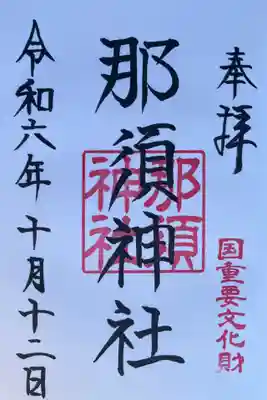 奉拝
国重要文化財
那須神社
那須
神社
令和六年十月十二日